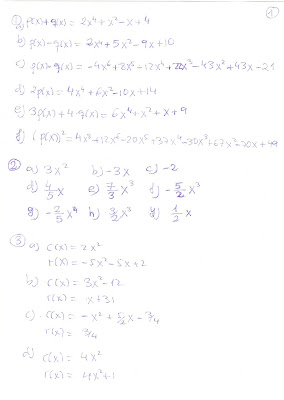 ①
① a) p(x)+q(x) = 2x⁴+x²-x+4
b) p(x)-q(x) = 2x⁴+5x²-9x+10
c) p(x)·q(x) = -4x⁶+2x⁵-12x⁴+22x³-43x²+43x-21
d) 2p(x) = 4x⁴+6x²-10x+14
e) 3p(x)+4·q(x) = 6x⁴+x²+x+9
f) (p(x))² = 4x⁸+12x⁶-20x⁵+37x⁴-30x³+67x²-70x+49
② a) 3x² b) -3x c) -2
d) 4/5 x e) 7/3 x³ f) -5/2 x³
g) -2/5 x⁴ h) 3/2 x³ i) 1/2 x
③ a) c(x) = 2x²
r(x) = -5x³-5x+2
b) c(x) = 3x²-12
r(x) = x+31
c) c(x) = -x²+5/2 x-3/4
r(x) = 3/4
d) c(x) = 4x²
r(x) = 4x²+1